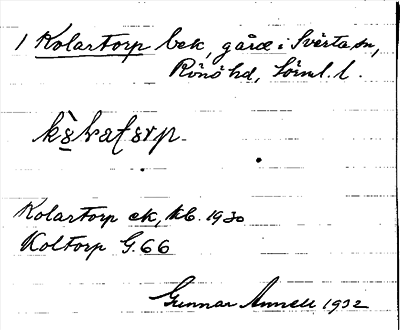 1 Kolartorp bek, gård i Svärta sn,
Rönö hd, Sörml. l.
Kolartorp ek, kb. 1930
Koltorp G. 66
Gunnar Annell 1932